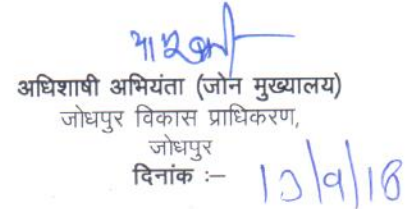 अधिशाषी अभियंता (जोन मुख्यालय)
जोधपुर विकास प्राधिकरण,
जोधपुर
दिनांक :–